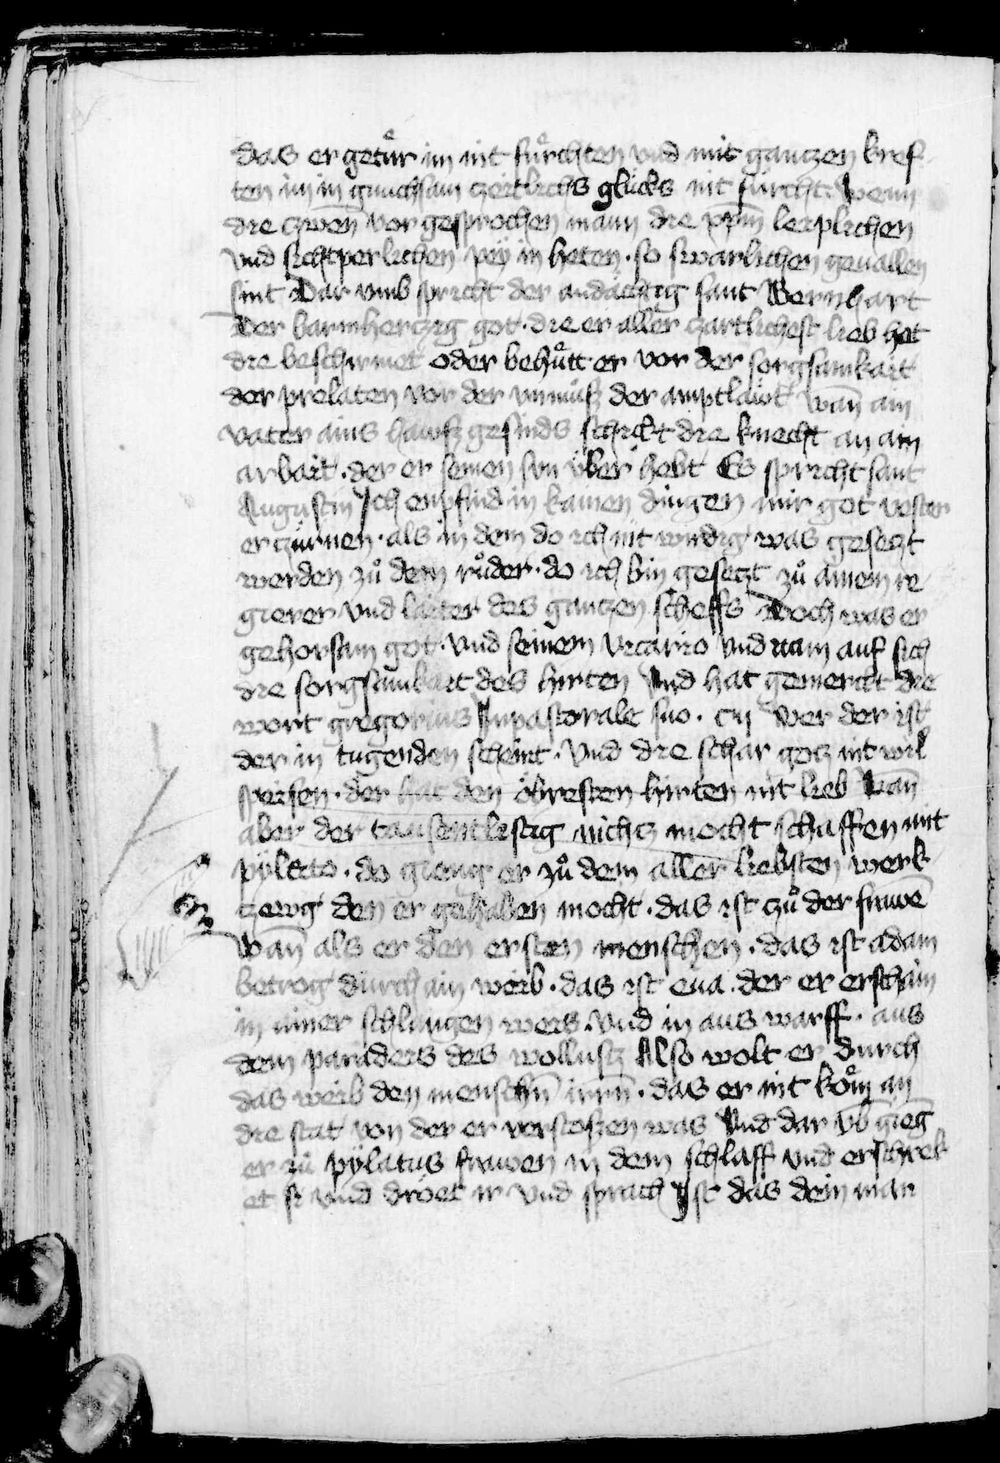 das er getuͤr im nit fuͤrchten vnd mit gantzen kref
ten im in gnuchsam czeitlichs glücks nit fürcht Wenn
die czwen vor gesprochen mann die leiplichen
vnd sichtperlichen pey in heten · so swarlichen geuallen
sint Dar vmb spricht der andächtig sant Bernhart
Der barmherczig got · die er aller czartlichest lieb hat
die beschirmet oder behuͤtt er vor der sorgsamkait
der prelaten vor der vnmuͤsz der amptlawt wan̄ ain
vater ains hawsz gesinds schickt die knecht an ain
arbait · der er seinen sun über hebt Es spricht sant
Augustin Ich enpfind in kainen dingen mir got vester
erzürnen · als in dem do ich nit wirdig was gesetzt
werden zuͦ dem ruͦder · do ich bin gesetzt zuͦ ainem re
gierer vnd laiter des gantzen scheffs Doch was er
gehorsam got · vnd seinem vicario vnd nam auf sich
die sorgsamkait des hirten Vnd hat gemerckt die
wort gregorius In pastorale suo · Wer der ist
der in tugenden scheint · vnd die schar gotz nit wil
speisen · der hat den öbresten hirten nit lieb Wan̄
aber der tausentlistig nichtz mocht schaffen mit
pylato · do gieng er zuͦ dem aller liebsten werk
zewg den er gehaben mocht · das ist czuͦ der frawē
Wan̄ als er den ersten menschen · das ist adam
betrog durch ain weib · das ist eua · der er erschain
in ainer schlangen weis · Vnd in aus warff · aus
dem paradeis des wollustz Also wolt er durch
das weib den menschn̄ irrn̄ · das er nit koͤm an
die stat von der er verstoszen was Vnd dar vb̄ gieḡ
er zuͦ pylatus frawen in dem schlaff vnd erschrek
et si vnd dröet ir vnd sprach Ist das dein man